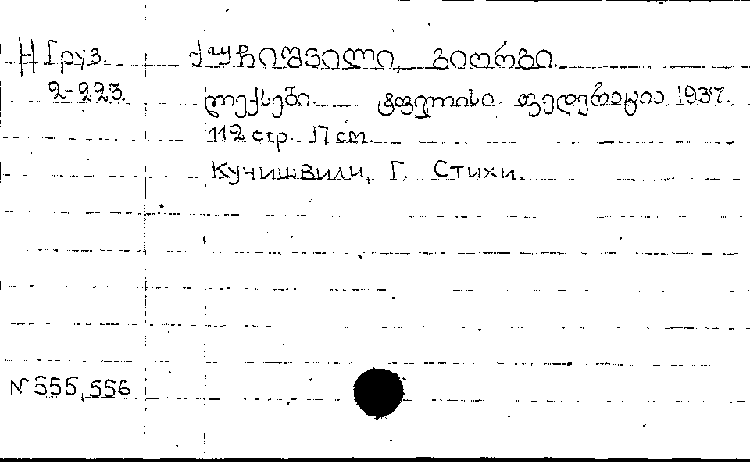 Н Груз. ქუჩიშვილი, გიორგი.
2-223. ლექსები. ტფილისი. ფედერაცია. 1937.
112 стр. 17 cm.
Кучишвили, Г. Стихи.
№ 555, 556